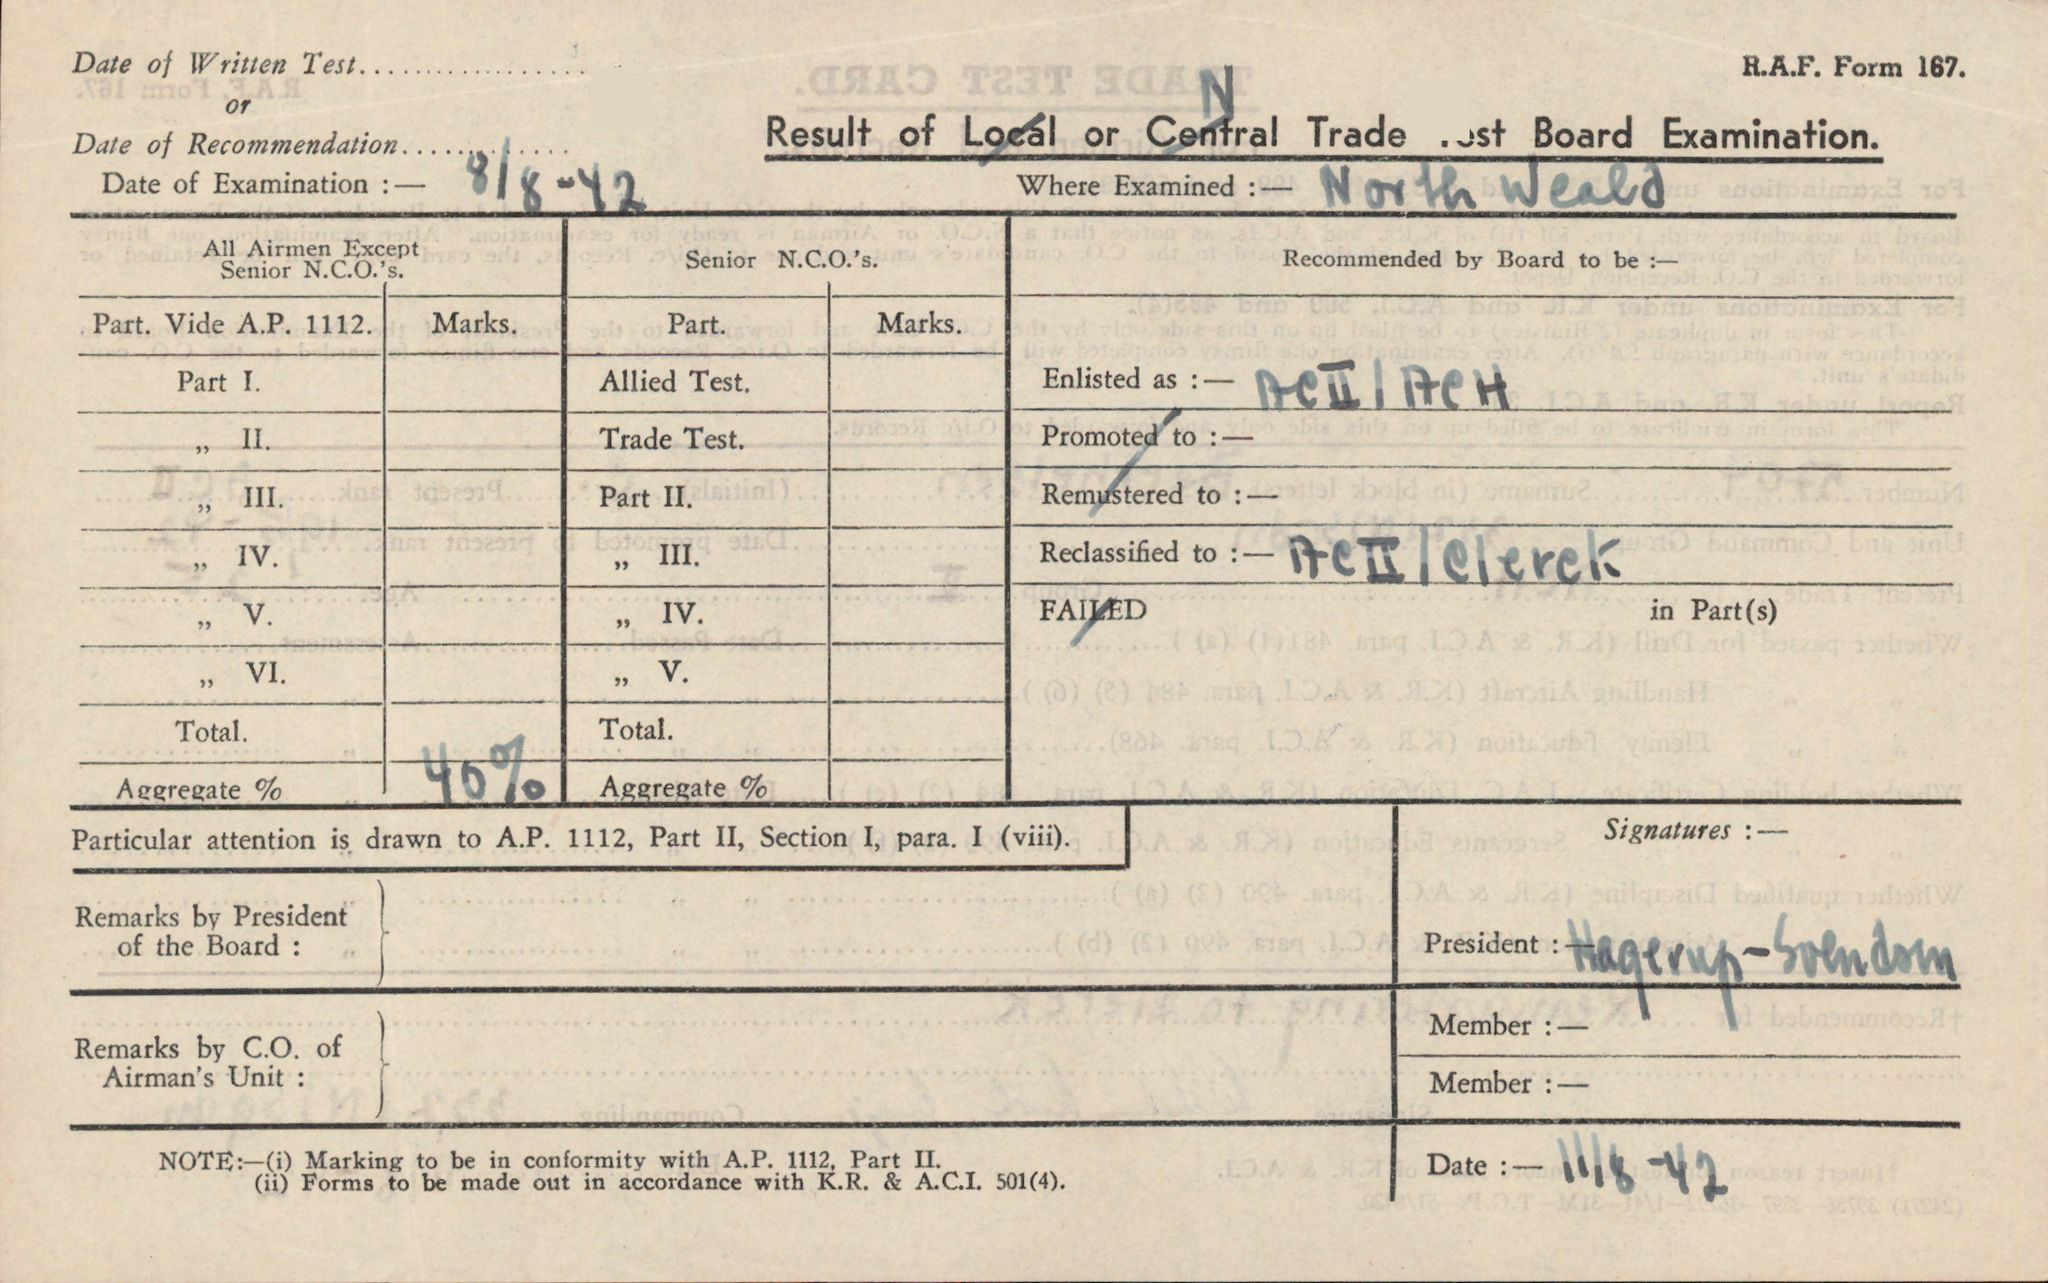 Date of Written Test....................
R.A.F. Form 167.
or
N
Date of Recommendation..............
Result of Local or Central Trade st Board Examination.
Date of Examination :— 8/8-42
Where Examined :— North Weald
All Airmen Except
Senior N.C.O.'s.
Senior N.C.O.'s.
Recommended by Board to be :—
Part. Vide A.P. 1112. Marks. Part. Marks.
Part I. Allied Test. Enlisted as :— ACII/ACH
„ II. Trade Test. Promoted to :—
„ III. Part II. Remustered to :—
„ IV. „ III. Reclassified to :— ACII/Clerck
„ V. „ IV. FAILED in Part(s)
„ VI. „ V.
Total. Total.
Aggregate % 40% Aggregate %
Particular attention is drawn to A.P. 1112, Part II, Section I, para. I (viii).
Signatures :—
Remarks by President
of the Board :
President :— Hagerup-Svendsen
Member :—
Remarks by C.O. of
Airman's Unit :
Member :—
NOTE:—(i) Marking to be in conformity with A.P. 1112, Part II.
(ii) Forms to be made out in accordance with K.R. & A.C.I. 501(4).
Date :— 11/8-42